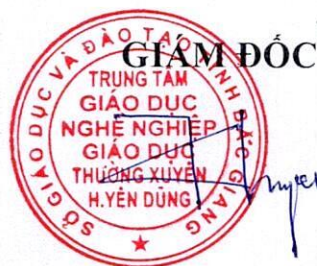 GIÁM ĐỐC
SỞ GIÁO DỤC VÀ ĐÀO TẠO TỈNH BẮC GIANG
TRUNG TÂM
GIÁO DỤC
NGHỀ NGHIỆP
GIÁO DỤC
THƯỜNG XUYÊN
H.YÊN DŨNG